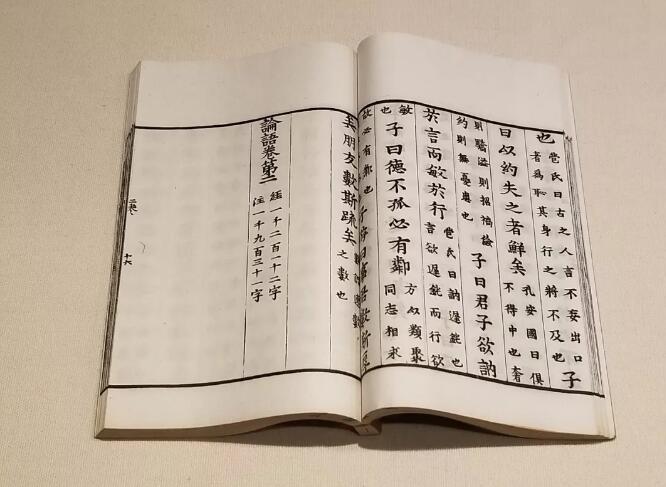 也 苞氏曰古之人言不妄出口
者為恥其身行之將不及也 子
曰以約失之者鮮矣 孔安國曰俱
不得中也奢
則驕溢則招禍儉
約則無憂患也 子曰君子欲訥
於言而敏於行 苞氏曰訥遲鈍也
言欲遲鈍而行欲
敏
也 子曰德不孤必有鄰 方以類聚
同志相求
故必有鄰也 子游曰事君數斯辱
矣朋友數斯疏矣
之數也
論語卷第二 經一千二百一十二字
注一千九百三十一字
十六